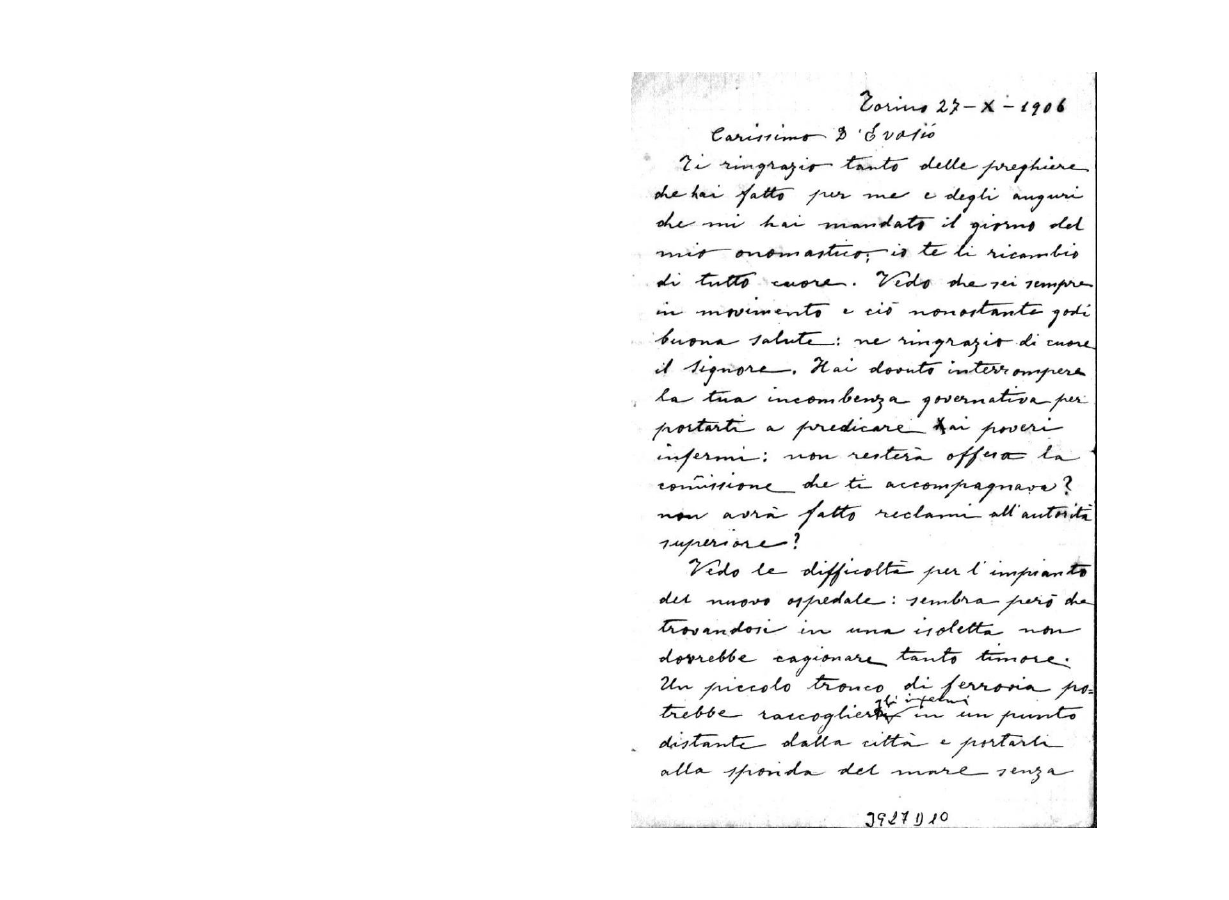 Torino 27-X-1906
Carissimo D. Evasio
Ti ringrazio tanto delle preghiere
che hai fatto per me e degli auguri
che mi hai mandato il giorno del
mio onomastico, io te li ricambio
di tutto cuore. Vedo che sei sempre
in movimento e ciò nonostante godi
buona salute: ne ringrazio di cuore
il Signore. Hai dovuto interrompere
la tua incombenza governativa per
portarti a predicare ai poveri
infermi: non resterà offesa la
com̃issione che ti accompagnava?
non avrà fatto reclami all'autorità
superiore?
Vedo le difficoltà per l'impianto
del nuovo ospedale: sembra però che
trovandosi in una isoletta non
dovrebbe cagionare tanto timore.
Un piccolo tronco di ferrovia po=
trebbe raccoglier gli infermi in un punto
distante dalla città e portarli
alla sponda del mare senza
3927 D 10